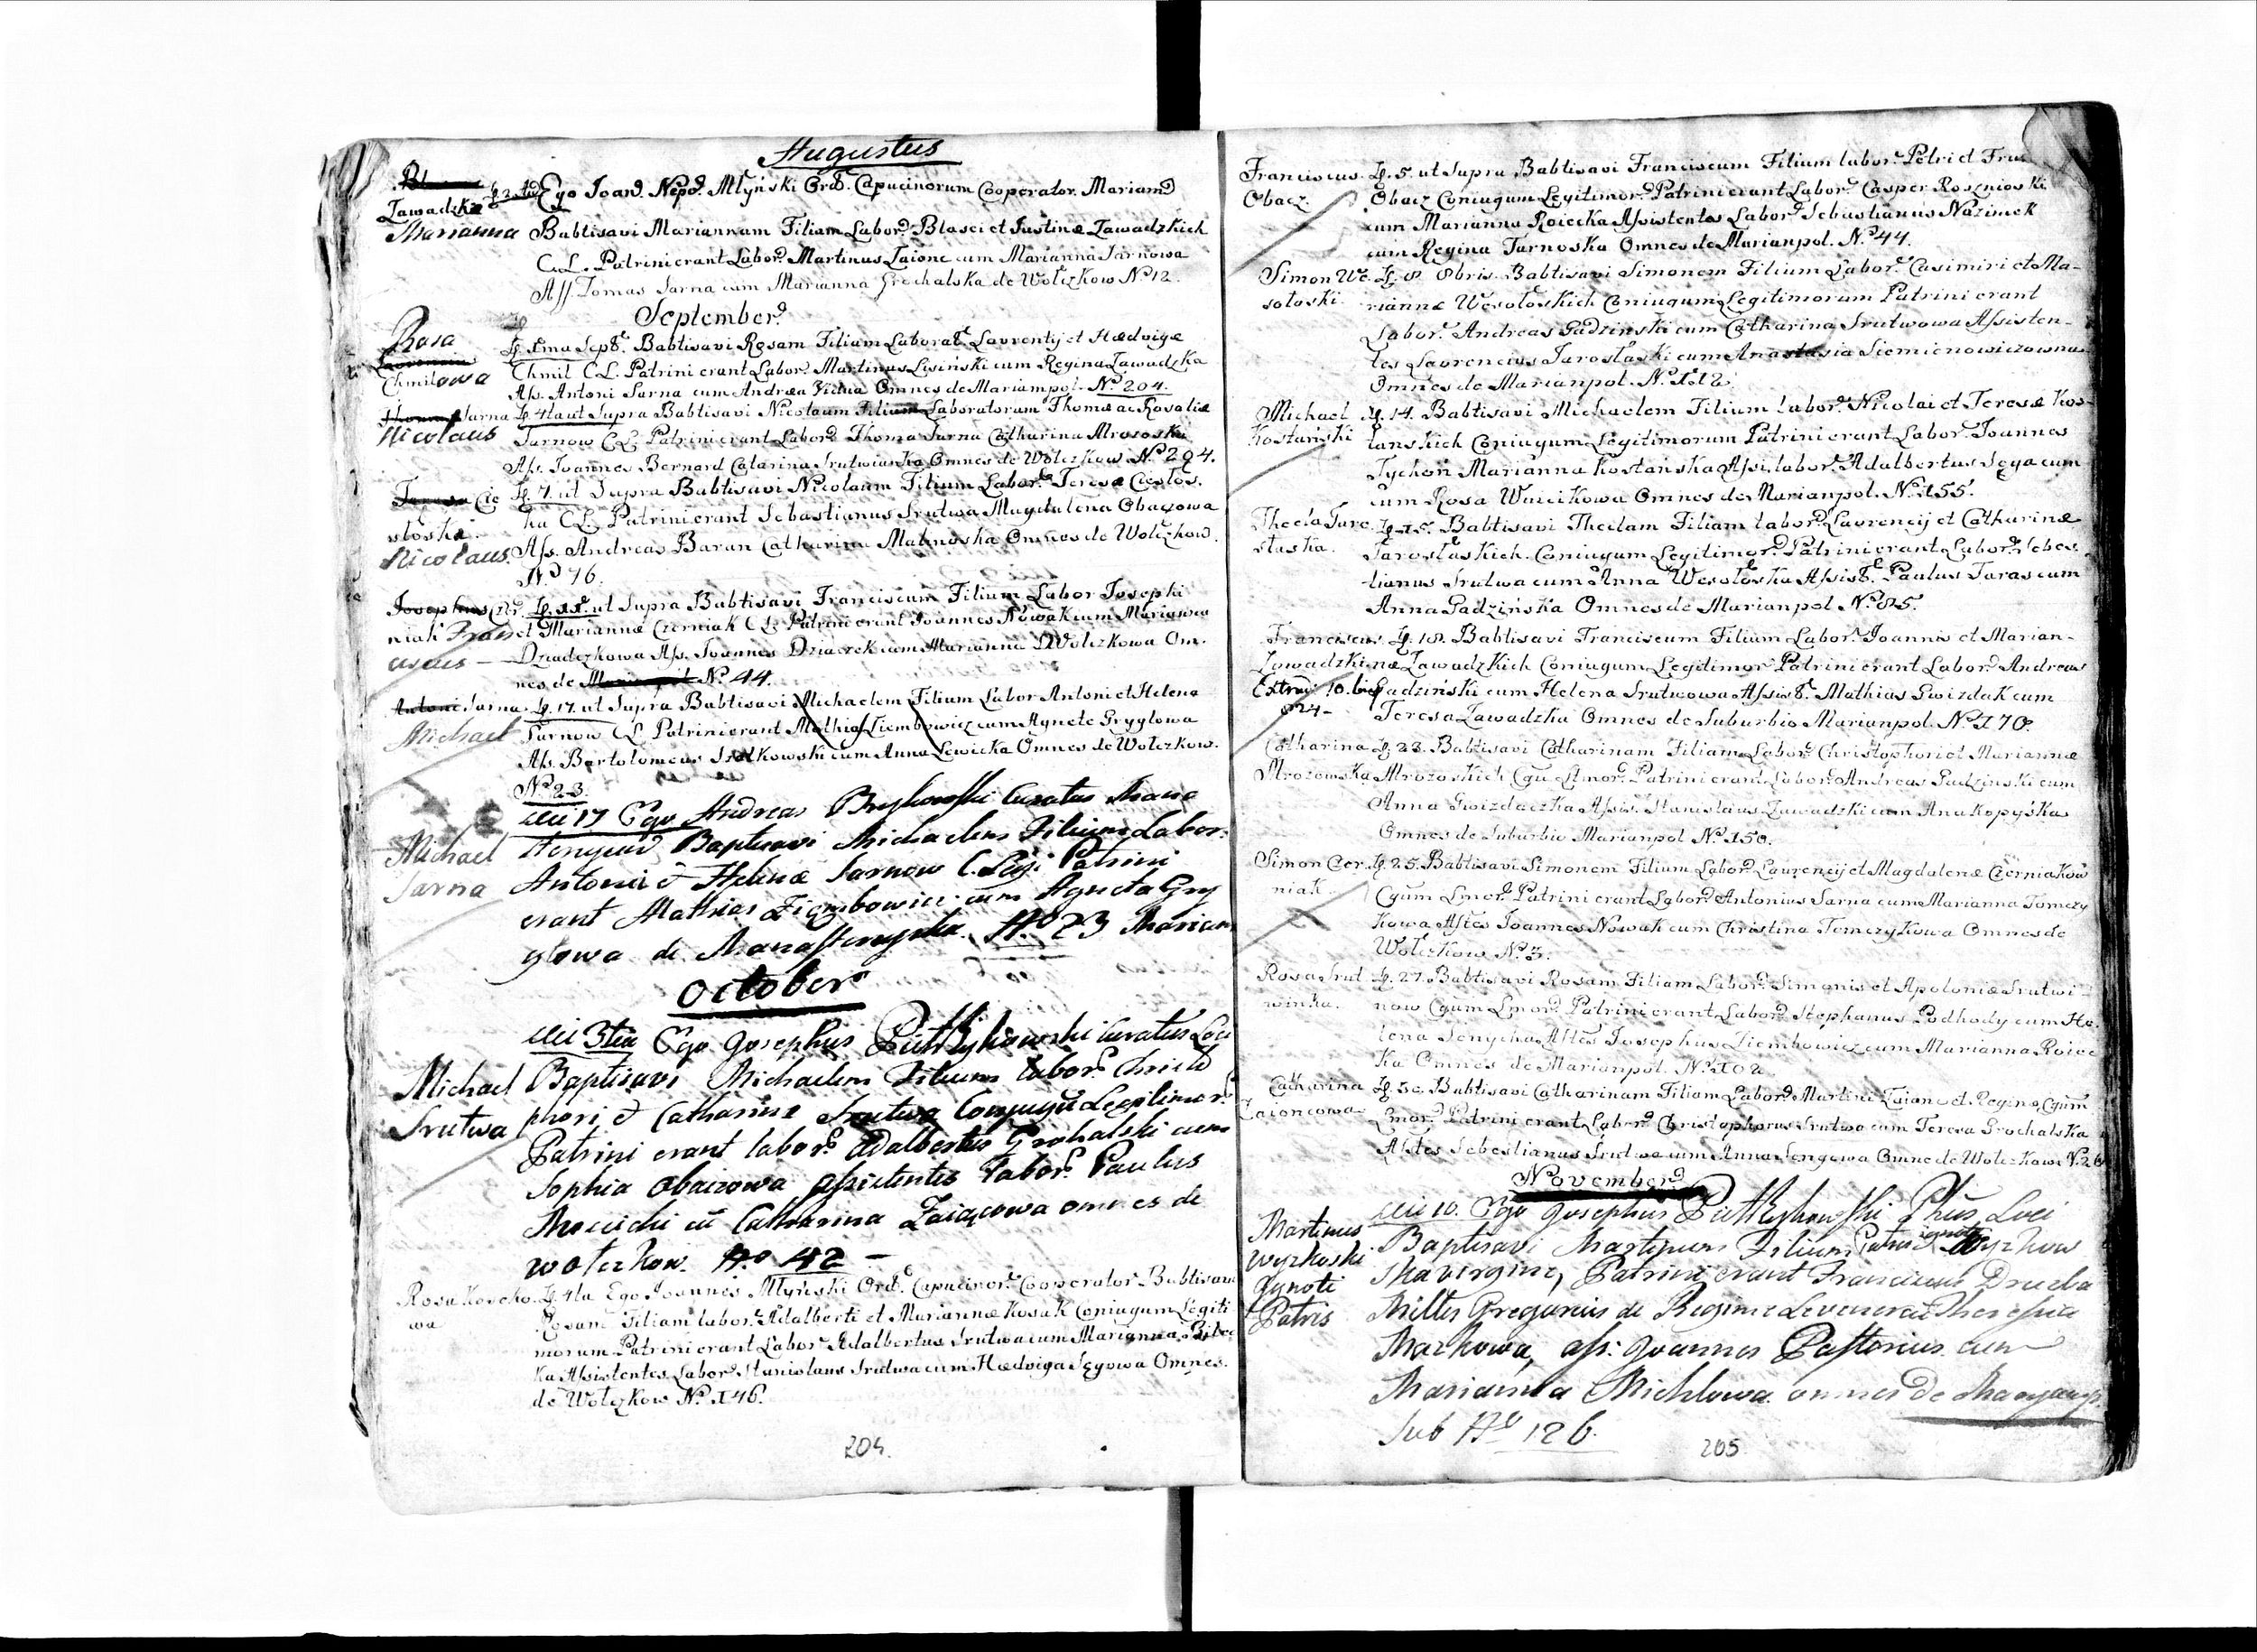 Augustus
Zawadzki
Marianna
Ego Joan. Nepo. Młyński Ord. Capucinorum Cooperator. Mariam
Babtisavi Mariannam Filiam Labor. Blasei et Justinæ Zawadzkich
C. L. Patrini erant Labor. Martinus Zaionc cum Marianna Sarnowa
Ass. Tomas Sarna cum Marianna Grochalska de Wołczkow N. 12.
September
Rosa
Chmilowa
Sept. Babtisavi Rosam Filiam Laborat. Lavrentij et Hædvigæ
Chmil C L. Patrini erant Labor. Martinus Lisiński cum Regina Zawadzka
Ass. Antoni Sarna cum Andrea Omnes de Mariampol. No. 204.
Sarna
Nicolaus
4ta ut Supra Babtisavi Nicolaum Filium Laboratorum Thomæ ac Rosaliæ
Sarnow C L Patrini erant Labor. Thoma Sarna Catharina Mrozoska
Ass. Joannes Bernard Catarina Srutwianka Omnes de Wołczkow No. 204.
Cie
słoski
Nicolaus
7. ut Supra Babtisavi Nicolaum Filium Labor. Teresæ Ciesłos.
ka C L. Patrini erant Sebastianus Srutwa Magdalena Obaczowa
Ass. Andreas Baran Catharina Malinoska Omnes de Wołczkow.
No 76.
Josephus Czer
niak Fran
ciscus
11. ut Supra Babtisavi Franciscum Filium Labor Josephi
et Mariannæ Czerniak C L. Patrini erant Joannes Nowak cum Marianna
Dziadczkowa Ass. Joannes Dziaczek cum Marianna Wołczkowa Om.
nes de Mariampol No. 44.
Antoni Sarna
Michael
17. ut Supra Babtisavi Michaelem Filium Labor Antoni et Helenæ
Sarnow C L Patrini erant Mathias Ziembowicz cum Agnete Gryglowa
Ass. Bartolomeus cum Anna Lewicka Omnes de Wołczkow.
No. 23.
Michael
Sarna
Die 17 Ego Andreas Curatus
Baptisavi Michaelem Filium Labor.
Antonii & Helenæ Sarnow C. Legi. Patrini
erant Mathias Ziembowicz cum Agneta Gry
glowa de No 23
October
Michael
Srutwa
Die 3tia Ego Josephus Curatus Loci
Baptisavi Michaelem Filium labor. Christo
phori & Catharinæ Srutwa Conjugu Legitimor.
Patrini erant labor. Adalbertus Grohalski cum
Sophia Obaczowa Assistentes labor. Paulus
cu Catharina Zaiącowa omnes de
wołczkow. No 42 –
Rosa Koscko
wa
4ta Ego Joannes Młyński Ord. Capucinor. Cooperator Babtisavi
Rosam Filiam labor. Adalberti et Mariannæ Kosak Coniugum Legiti
morum Patrini erant Labor. Adalbertus Srutwa cum Marianna
ka Assistentes Labor. Stanislaus Srutwa cum Hædviga Sęgowa Omnes.
de Wołczkow No. 146.
204.
Franciscus
Obacz.
5. ut Supra Babtisavi Franciscum Filium labor. Petri et
Obacz Coniugum Legitimor. Patrini erant Labor. Casper Rosznioski
cum Marianna Roiecka Assistentes Labor. Sebastianus Nazimek
cum Regina Tarnoska Omnes de Marianpol. No. 44.
Simon We
sołoski.
8. 8bris. Babtisavi Simonem Filium Labor. Casimiri et Ma-
riannæ Wesołoskich Coniugum Legitimorum Patrini erant
Labor. Andreas Gadzinski cum Catharina Srutwowa Assisten-
tes Lavrencius Jarosłaski cum Anastasia Siemienowiczowna
Omnes de Marianpol. No. 112.
Michael
Kostański
14. Babtisavi Michaelem Filium Labor. Nicolai et Teresæ Kos-
tanskich Coniugum Legitimorum Patrini erant Labor. Joannes
Tychon Marianna Kostańska Assi. labor. Adalbertus Sęga cum
cum Rosa Woicikowa Omnes de Marianpol. No. 155.
Thecla Jaro
słaska.
15. Babtisavi Theclam Filiam labor. Lavrencij et Catharinæ
Jarosłaskich. Coniugum Legitimor. Patrini erant Labor. Sebas
tianus Srutwa cum Anna Wesołoska Assist. Paulus Taras cum
Anna Gadzińska Omnes de Marianpol No. 85.
Franciscus
Zawadzki
Extrad. 10.
824 –
18. Babtisavi Franciscum Filium Labor. Joannis et Marian-
næ Zawadzkich Coniugum Legitimor Patrini erant Labor. Andreas
Gadziński cum Helena Srutwowa Assist. Mathias Gwizdak cum
Teresa Zawadzka Omnes de Suburbio Marianpol. No. 170.
Catharina
Mrozowska
23. Babtisavi Catharinam Filiam Labor. Christophori et Mariannæ
Mrozoskich Cgu Ltmor. Patrini erant Labor. Andreas Gadzinski cum
Anna Gwizdaczka Assis. Stanislaus Zawadzki cum Ana Kopyska
Omnes de Suburbio Marianpol No. 150.
Simon Czer
niak.
25. Babtisavi Simonem Filium Labor. Laurencij et Magdalenæ Czerniakow
Cgum Lmor. Patrini erant Labor. Antonius Sarna cum Marianna Tomczy
kowa Asstes Joannes Nowak cum Christina Tomczykowa Omnes de
Wołczkow No. 3.
Rosa Srut
winka.
27. Babtisavi Rosam Filiam Labor. Simonis et Apoloniæ Srutwi-
now Cgum Lmor. Patrini erant Labor. Stephanus Podhody cum He.
lena Senycha Asstes Josephus Ziembowicz cum Marianna Roiec
ka Omnes de Marianpol. No. 102.
Catharina
Zaioncowa
30. Babtisavi Catharinam Filiam Labor. Martini Zaionc et Reginæ Cgum
Lmor. Patrini erant Labor. Christophorus Srutwa cum Teresa Grochalska
Asstes Sebastianus Srutwa cum Anna Sengowa Omnes de Wołczkow N. 26
November
Martinus
Wyzkoski
Ignoti
Patris
Die 10. Ego Josephus Loci
Baptisavi Martinum Filium Patris ignoti Wyzkow
ska virginæ, Patrini erant Franciscus Druzba
Milles Gregarius de Regime
Mazkowa, ass: Joannes Pastorius cum
Marianna Michlowa omnes de
Sub No 126.
205